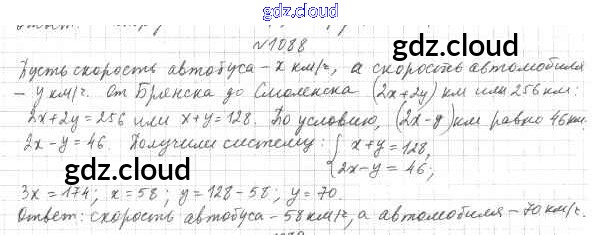 gdz.cloud
№1088
gdz.cloud
Пусть скорость автобуса - x км/ч, а скорость автомобиля
- y км/ч. От Брянска до Смоленска (2x+2y) км или 256 км:
2x+2y=256 или x+y=128. По условию, (2x-y) км равно 46 км.
2x-y=46. Получили систему: { x+y=128,
2x-y=46;
gdz.cloud
gdz.cloud
3x=174; x=58; y=128-58; y=70.
Ответ: скорость автобуса - 58 км/ч, а автомобиля - 70 км/ч.